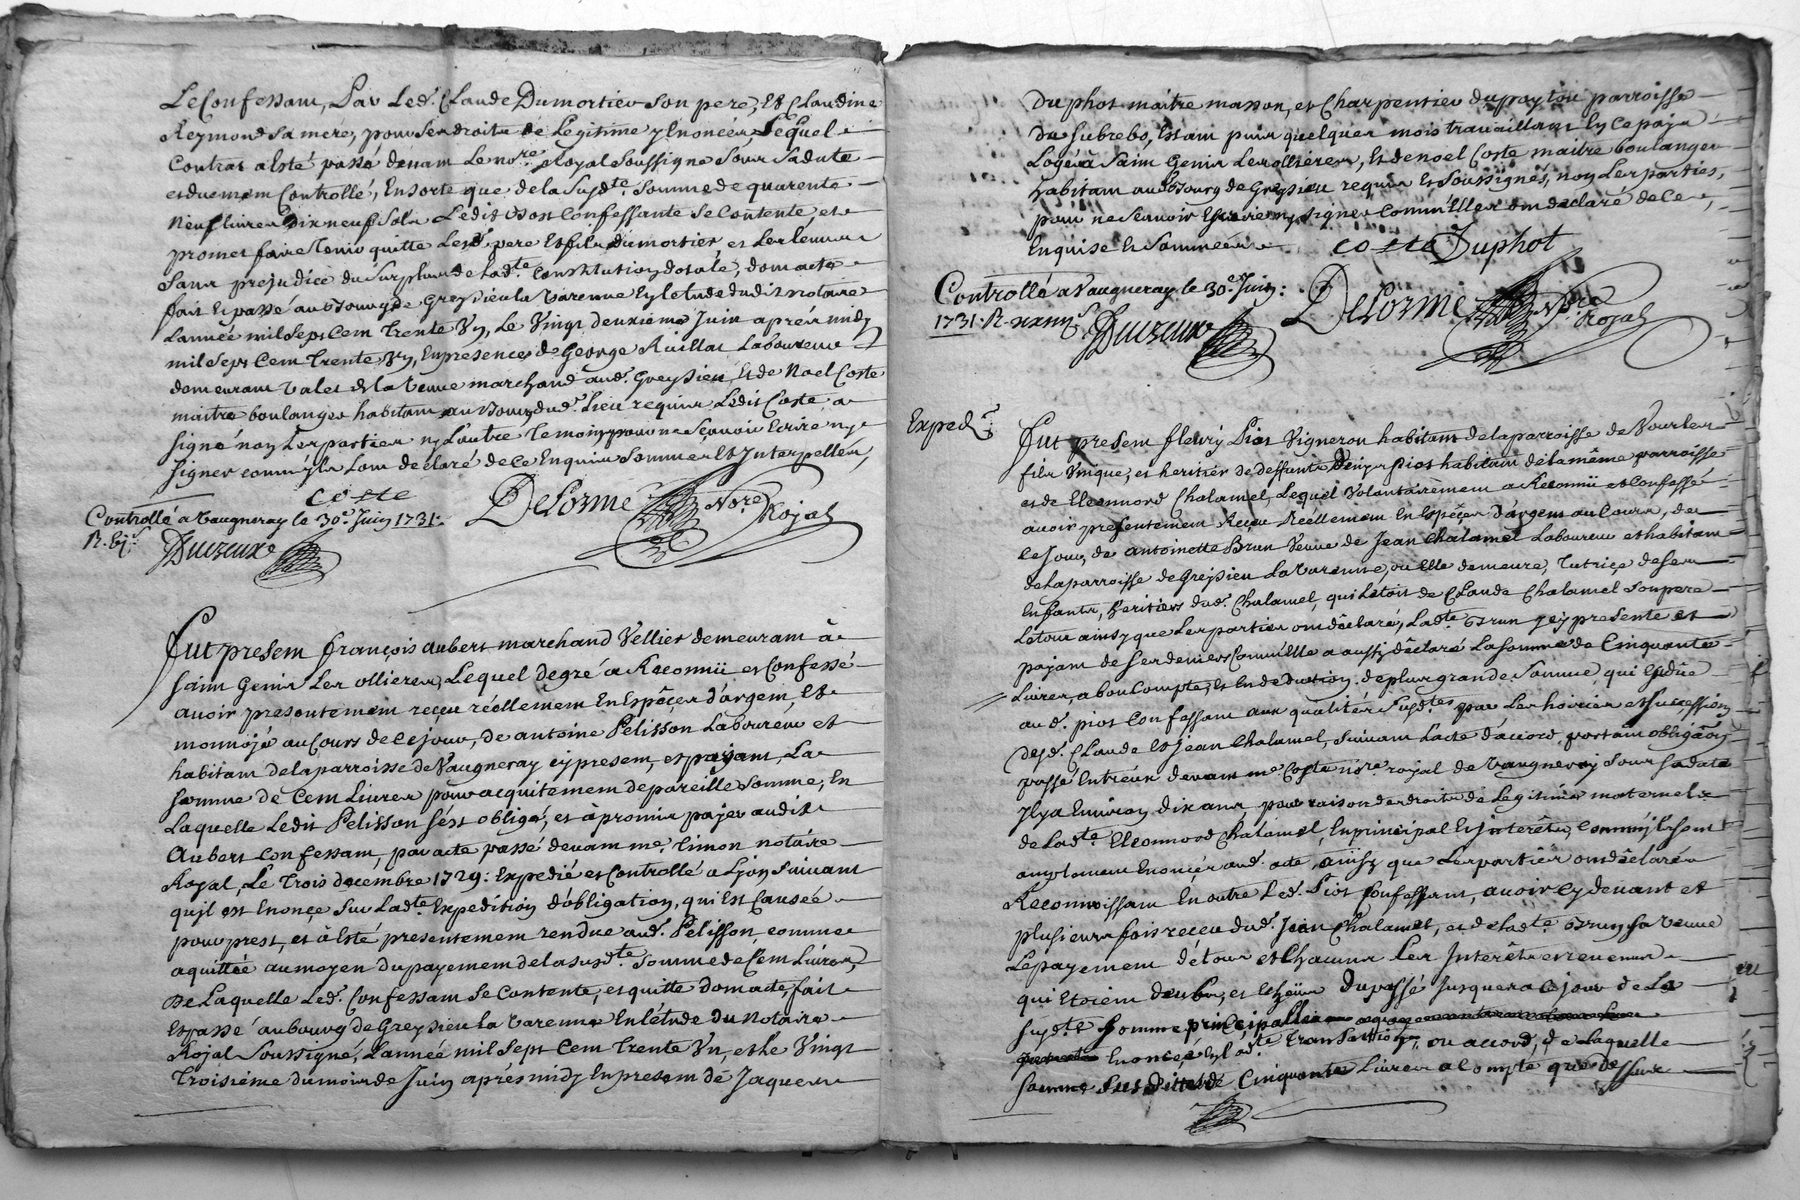 Le Confessant, Par Led. Claude Dumortier son pere, Et Claudine
Reymond sa mere, pour ses droits de Legitime y Enoncés Lequel
Contrat a Esté passé devant Le nore. Royal Soussigné Sous sa datte
et duement Controllé, En sorte que de la Susdte. Somme de quarente
Neuf livres Dix neuf Sols Ledit Confessante Se Contente et
promet faire Tenir quitte Lesd. pere Et fils dumortier et Les leurs
Sans prejudice du Surplus de Ladte. Constitution dotale, dont acte
fait Et passé au Bourg de Greysieu la Varenne En L'etude dudit notaire
L'année mil Sept Cent Trente Un, Le Vingt deuxieme Juin apres midy
mil Sept Cent Trente Un, En presence de George Laboureur
demeurant Valet de la Veuve marchand aud. Greysieu, Et de Noel Coste
maitre boulanger habitant au Bourg dud. Lieu requis Ledit Coste a
signé non Les parties ny L'autre Temoin pour ne Sçavoir Ecrire ny
Signer comm'ils L'ont declaré de ce Enquis Sommés Et Interpellés,
Coste
DeLorme Nore. Royal
Controllé a Vaugneray le 30e. Juin 1731.
Fut presem françois aubert marchand Vellier demeurant à
Saint Genis Les ollieres, Lequel de gré a Reconnü et Confessé
avoir presentement reçeu réellement En Espêces d'argent, Et
monnoye au Cours de ce jour, de antoine Pélisson Laboureur et
habitant de la parroisse de Vaugneray cy present, et payant, La
Somme de Cent Livres pour acquitement de pareille Somme, En
Laquelle Ledit Pelisson s'est obligé, et à promis payer audit
Aubert Confessant, par acte passé devant me. Timon notaire
Royal, Le Trois decembre 1729: Expedié et Controllé a Lyon Suivant
qu'il est Enoncé Sur Ladte. Expedition d'obligation, qui Est Causée
pour prest, et à Esté presentement rendue aud. Pelisson, comme
aquittée au moyen du payement de la susdte. Somme de Cent Livres,
De Laquelle Led. Confessant Se Contente, et quitte dont acte, fait
Et passé au bourg de Greysieu La Varenne En L'étude Du Notaire
Royal Soussigné, L'année mil Sept Cent Trente Un, et Le Vingt
Troisième du mois de Juin après midy En presence de Jaques
Duphot maitre masson, et Charpentier du pay parroisse
de Estant puis quelques mois travaillant En ce pays
Logé à Saint Genis Les ollieres, Et de noel Coste maitre boulanger
habitant au Bourg de Greysieu requis Et Soussignés, non Les parties,
pour ne Scavoir Escrire ny Signer Comm'Elles ont declaré de ce
Enquise Et Sommées
coste Duphot
Controllé a Vaugneray le 30e. Juin:
1731.
DeLorme Nore. Royal
Exped.
Fut present fleury Piot Vigneron habitant de la parroisse de Vourles
fils Unique, et heritier de deffunts Piot habitant de la même parroisse
et de Eleonnord Chalamel, Lequel Volontairement a Reconnü et Confessé
avoir presentement Reçeu Réellement En Espêces d'argent au Cours, de
Ce Jour, de antoinette Brun Veuve de Jean Chalamel Laboureur et habitant
de La parroisse de Greysieu La Varenne, où Elle demeure, Tutriçe de Ses
Enfants, heritiers dud. Chalamel, qui L'etoit de Claude Chalamel Son pere
Le tout ainsy que Les parties ont déclaré, Ladte. Brun y cy presente et
payant de Ses deniers Comm'Elle a aussy déclaré La Somme de Cinquante
Livres, a bon Compte, Et En deduction de plus grande Somme qui Est düe
aud. piot Confessant aux qualités Susdtes. par Les hoiries et Succession
desd. Claude Et Jean Chalamel, Suivant L'acte d'accord portant obligâon
passé Entr'eux devant me. Coste nore. royal de Vaugneray Sous sa date
Il y a Environ dix ans pour raison des droits de Legitime maternels
de Ladte. Eleonnord Chalamel, En principal Et Interêts, Comm'ils sont
amplement Enoncés aud. acte, ainsy que Les parties ont déclaré
Reconnoissant En outre Led. Piot Confessant, avoir Cy devant et
plusieurs fois reçeu dud. Jean Chalamel, et de Ladte. Brun Sa Veuve
Le payement de tous et Chacuns Les Interêts et revenus
qui Etoient deubs, et Echeüs Du passé Jusques a Ce jour de La
susdte. Somme principalle
Enoncée En Ladte. Transaction, ou accord, de Laquelle
Somme Susditte de Cinquante Livres a Compte que Dessus